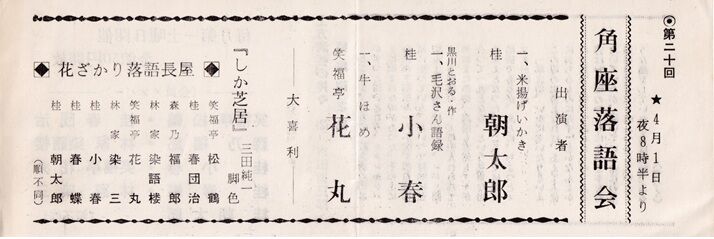 ◉第二十回
角座落語会
★４月１日
夜８時半より
出演者
一、米揚げいかき
桂　朝太郎
黒川とおる・作
一、毛沢さん語録
桂　小春
一、牛ほめ
笑福亭　花丸
―大喜利―
『しか芝居』三田純一脚色
◆花ざかり落語長屋◆
笑福亭　松鶴
桂　春団治
森乃　福郎
林家　染語楼
笑福亭　花丸
林家　染三
桂　小春
桂　春蝶
桂　朝太郎
（順不同）